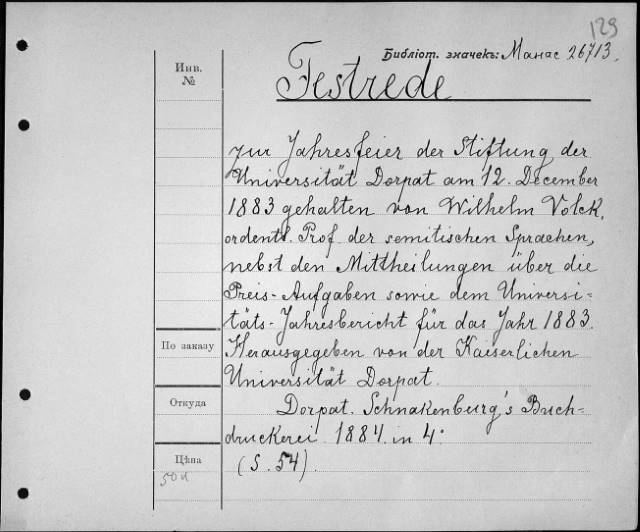 129
Библіот. значекъ: Манас 26713.
Инв.
№
Festrede
zur Jahresfeier der Stiftung der
Universität Dorpat am 12. December
1883 gehalten von Wilhelm Volck,
ordentl. Prof. der semitischen Sprachen,
nebst den Mittheilungen über die
Preis-Aufgaben sowie dem Universi-
täts-Jahresbericht für das Jahr 1883.
Herausgegeben von der Kaiserlichen
Universität Dorpat.
Dorpat. Schnakenburg's Buch-
druckerei. 1884. in 4:
(S. 54).
По заказу
Откуда
Цѣна